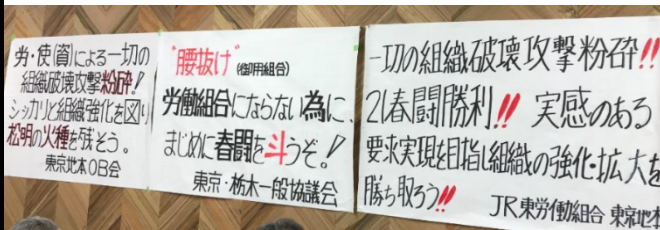 労・使(資)による一切の
組織破壊攻撃粉砕!
シッカリと組織強化を図り
松明の火種を残そう。
東京地本OB会
"腰抜け"(御用組合)
労働組合にならない為に、
まじめに春闘を斗うぞ!
東京・栃木一般協議会
一切の組織破壊攻撃粉砕!!
21春闘勝利!! 実感のある
要求実現を目指し組織の強化・拡大を
勝ち取ろう!!
JR東労働組合 東京地本